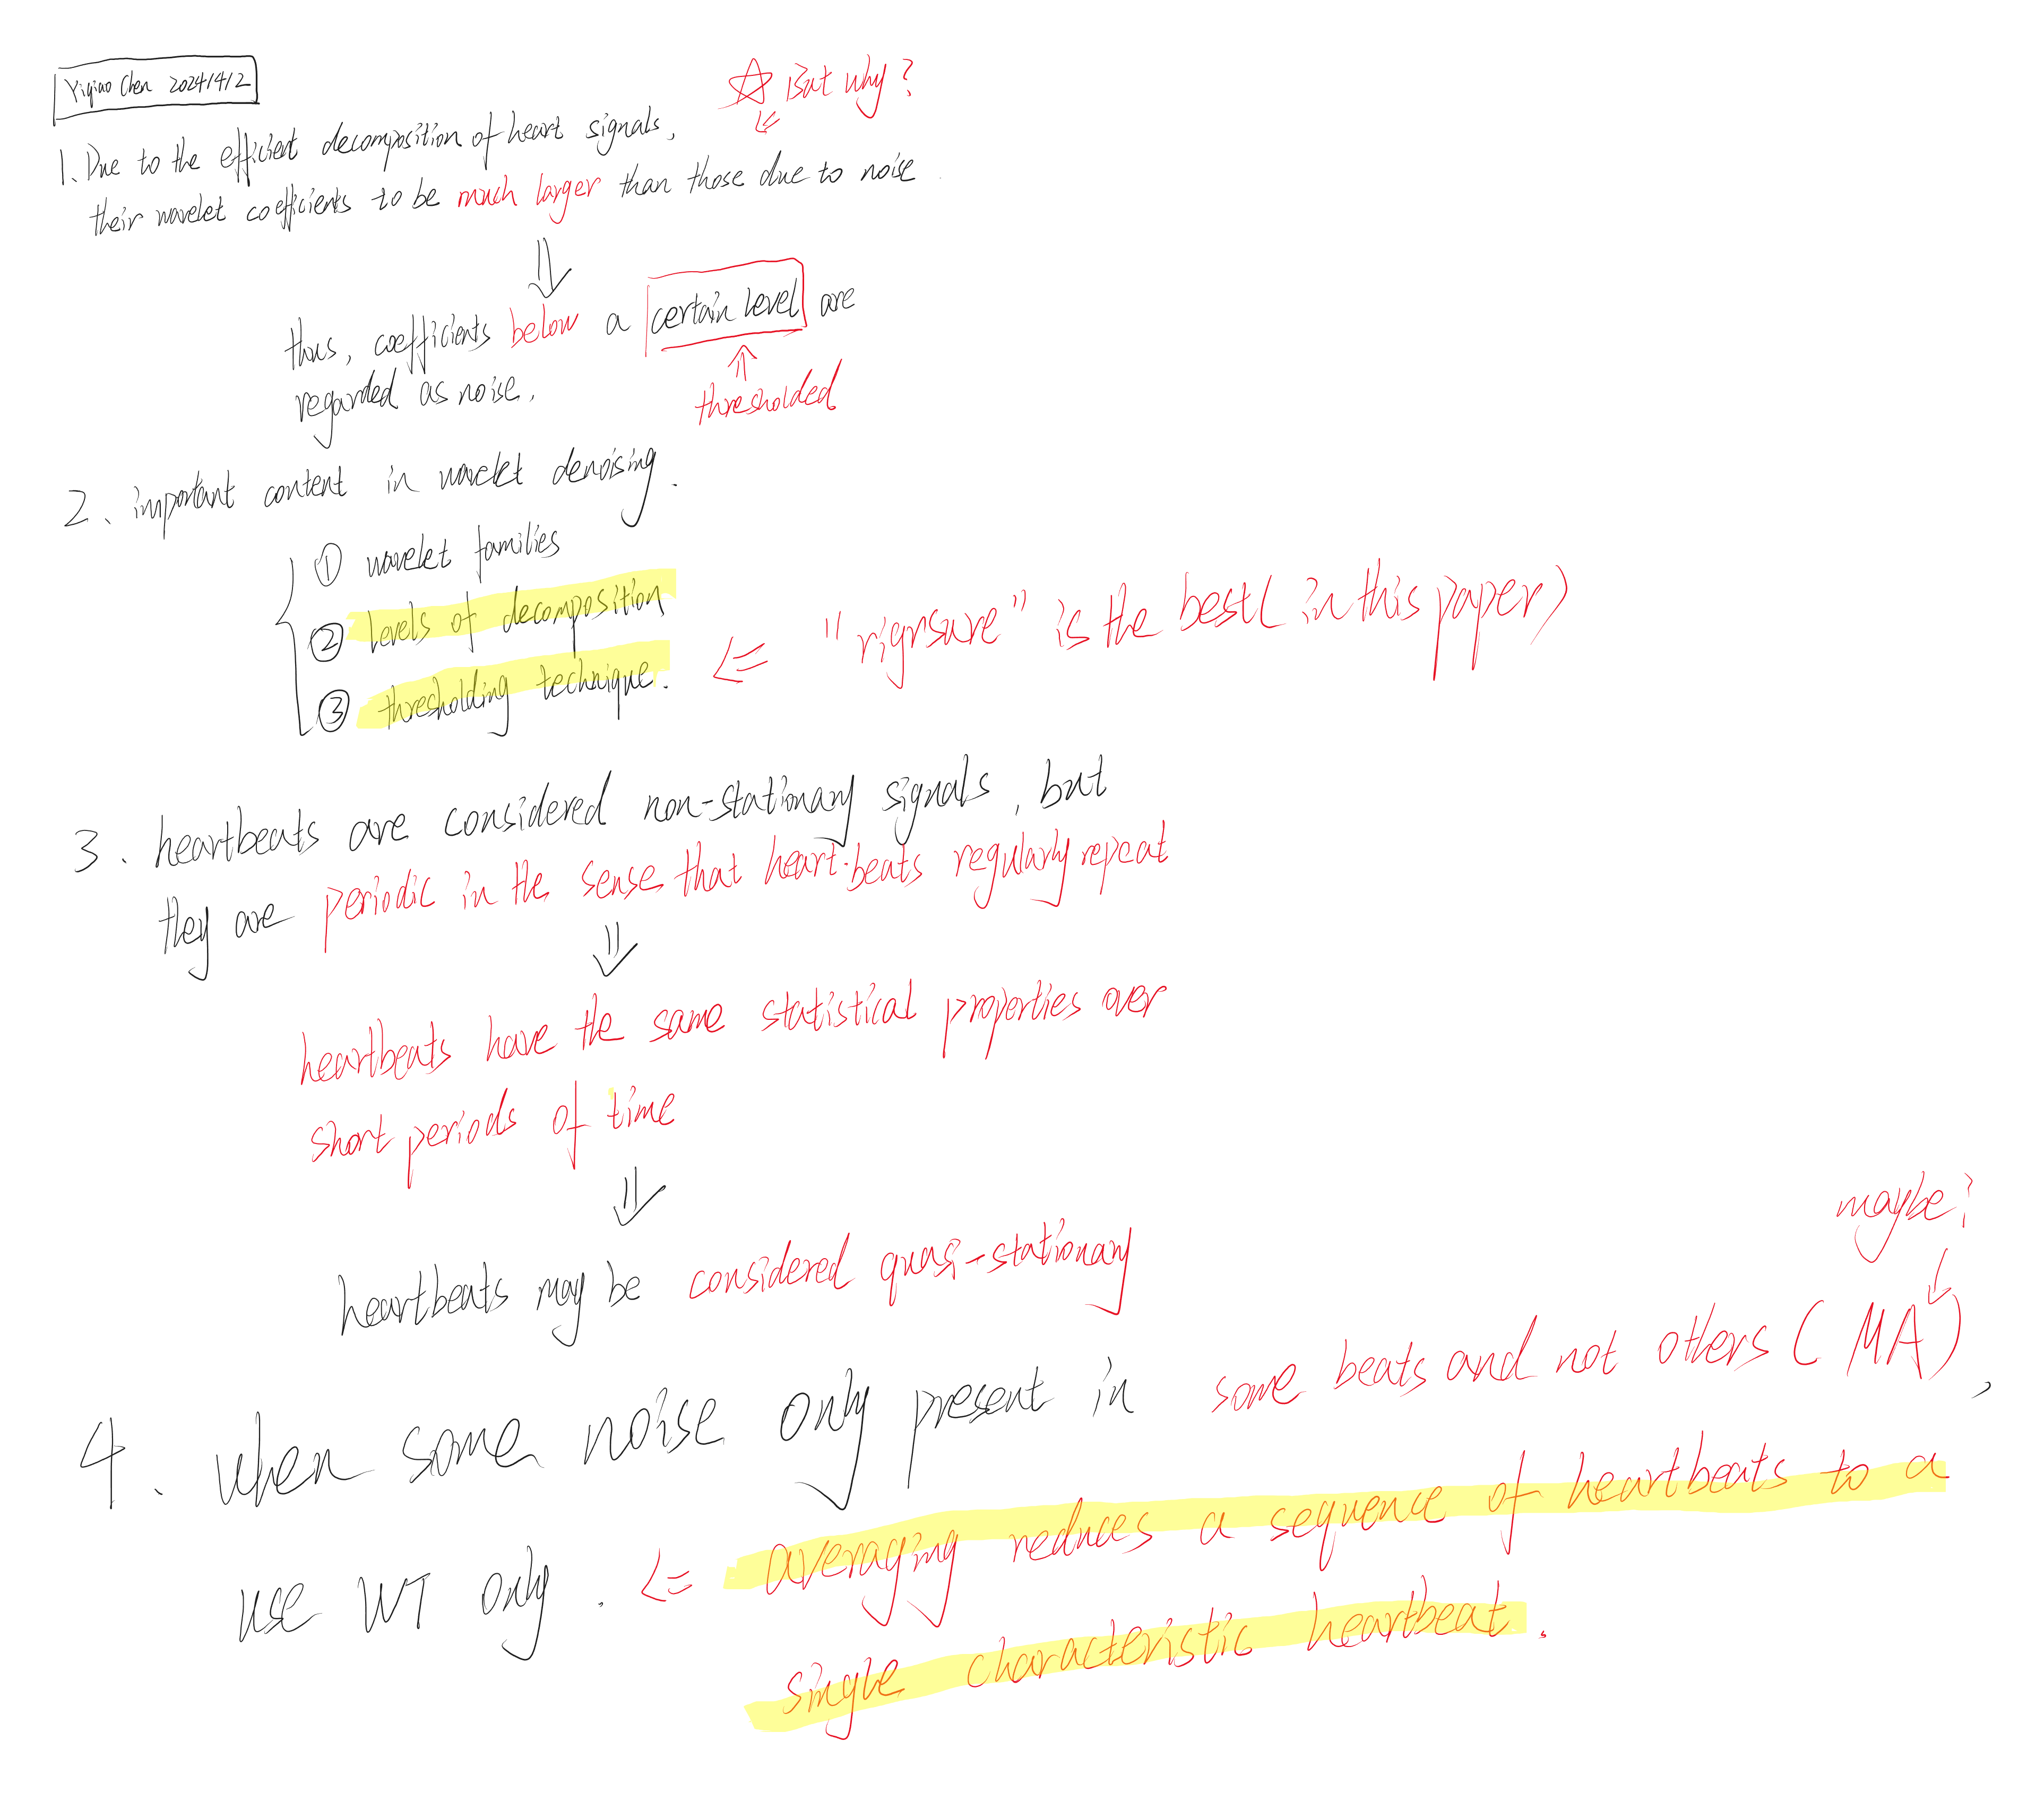 Yiqiao Chen 2024/4/2
☆ But why?
⇐
1、Due to the efficient decomposition of heart signals,
their wavelet coefficients to be much larger than those due to noise.
⇓
thus, coefficients below a certain level are
↑
regarded as noise.
thresholded
2、important content in wavelet denoising.
① wavelet families
② levels of decomposition
③ thresholding technique. ⇐ "rigrsure" is the best (in this paper)
3、heartbeats are considered non-stationary signals, but
they are periodic in the sense that heart-beats regularly repeat
⇓
heartbeats have the same statistical properties over
short periods of time
⇓
heartbeats may be considered quasi-stationary
maybe?
↓
4、when some noise only present in some beats and not others (MA),
use WT only. ⇐ averaging reduces a sequence of heartbeats to a
single characteristic heartbeat.